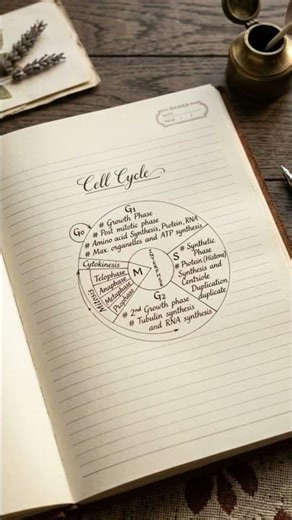 Cell Cycle
G₀
G₁
# Growth Phase
# Post mitotic phase
# Amino acid Synthesis, Protein, RNA
# Max. organelles and ATP synthesis
INTERPHASE
S
# Synthetic
Phase
# Protein (Histone)
Synthesis and
Centriole
Duplication
duplicate,
G₂
# 2nd Growth phase
# Tubulin synthesis
and RNA synthesis
M
Cytokinesis
Telophase
Anaphase
Metaphase
Prophase
Mitosis